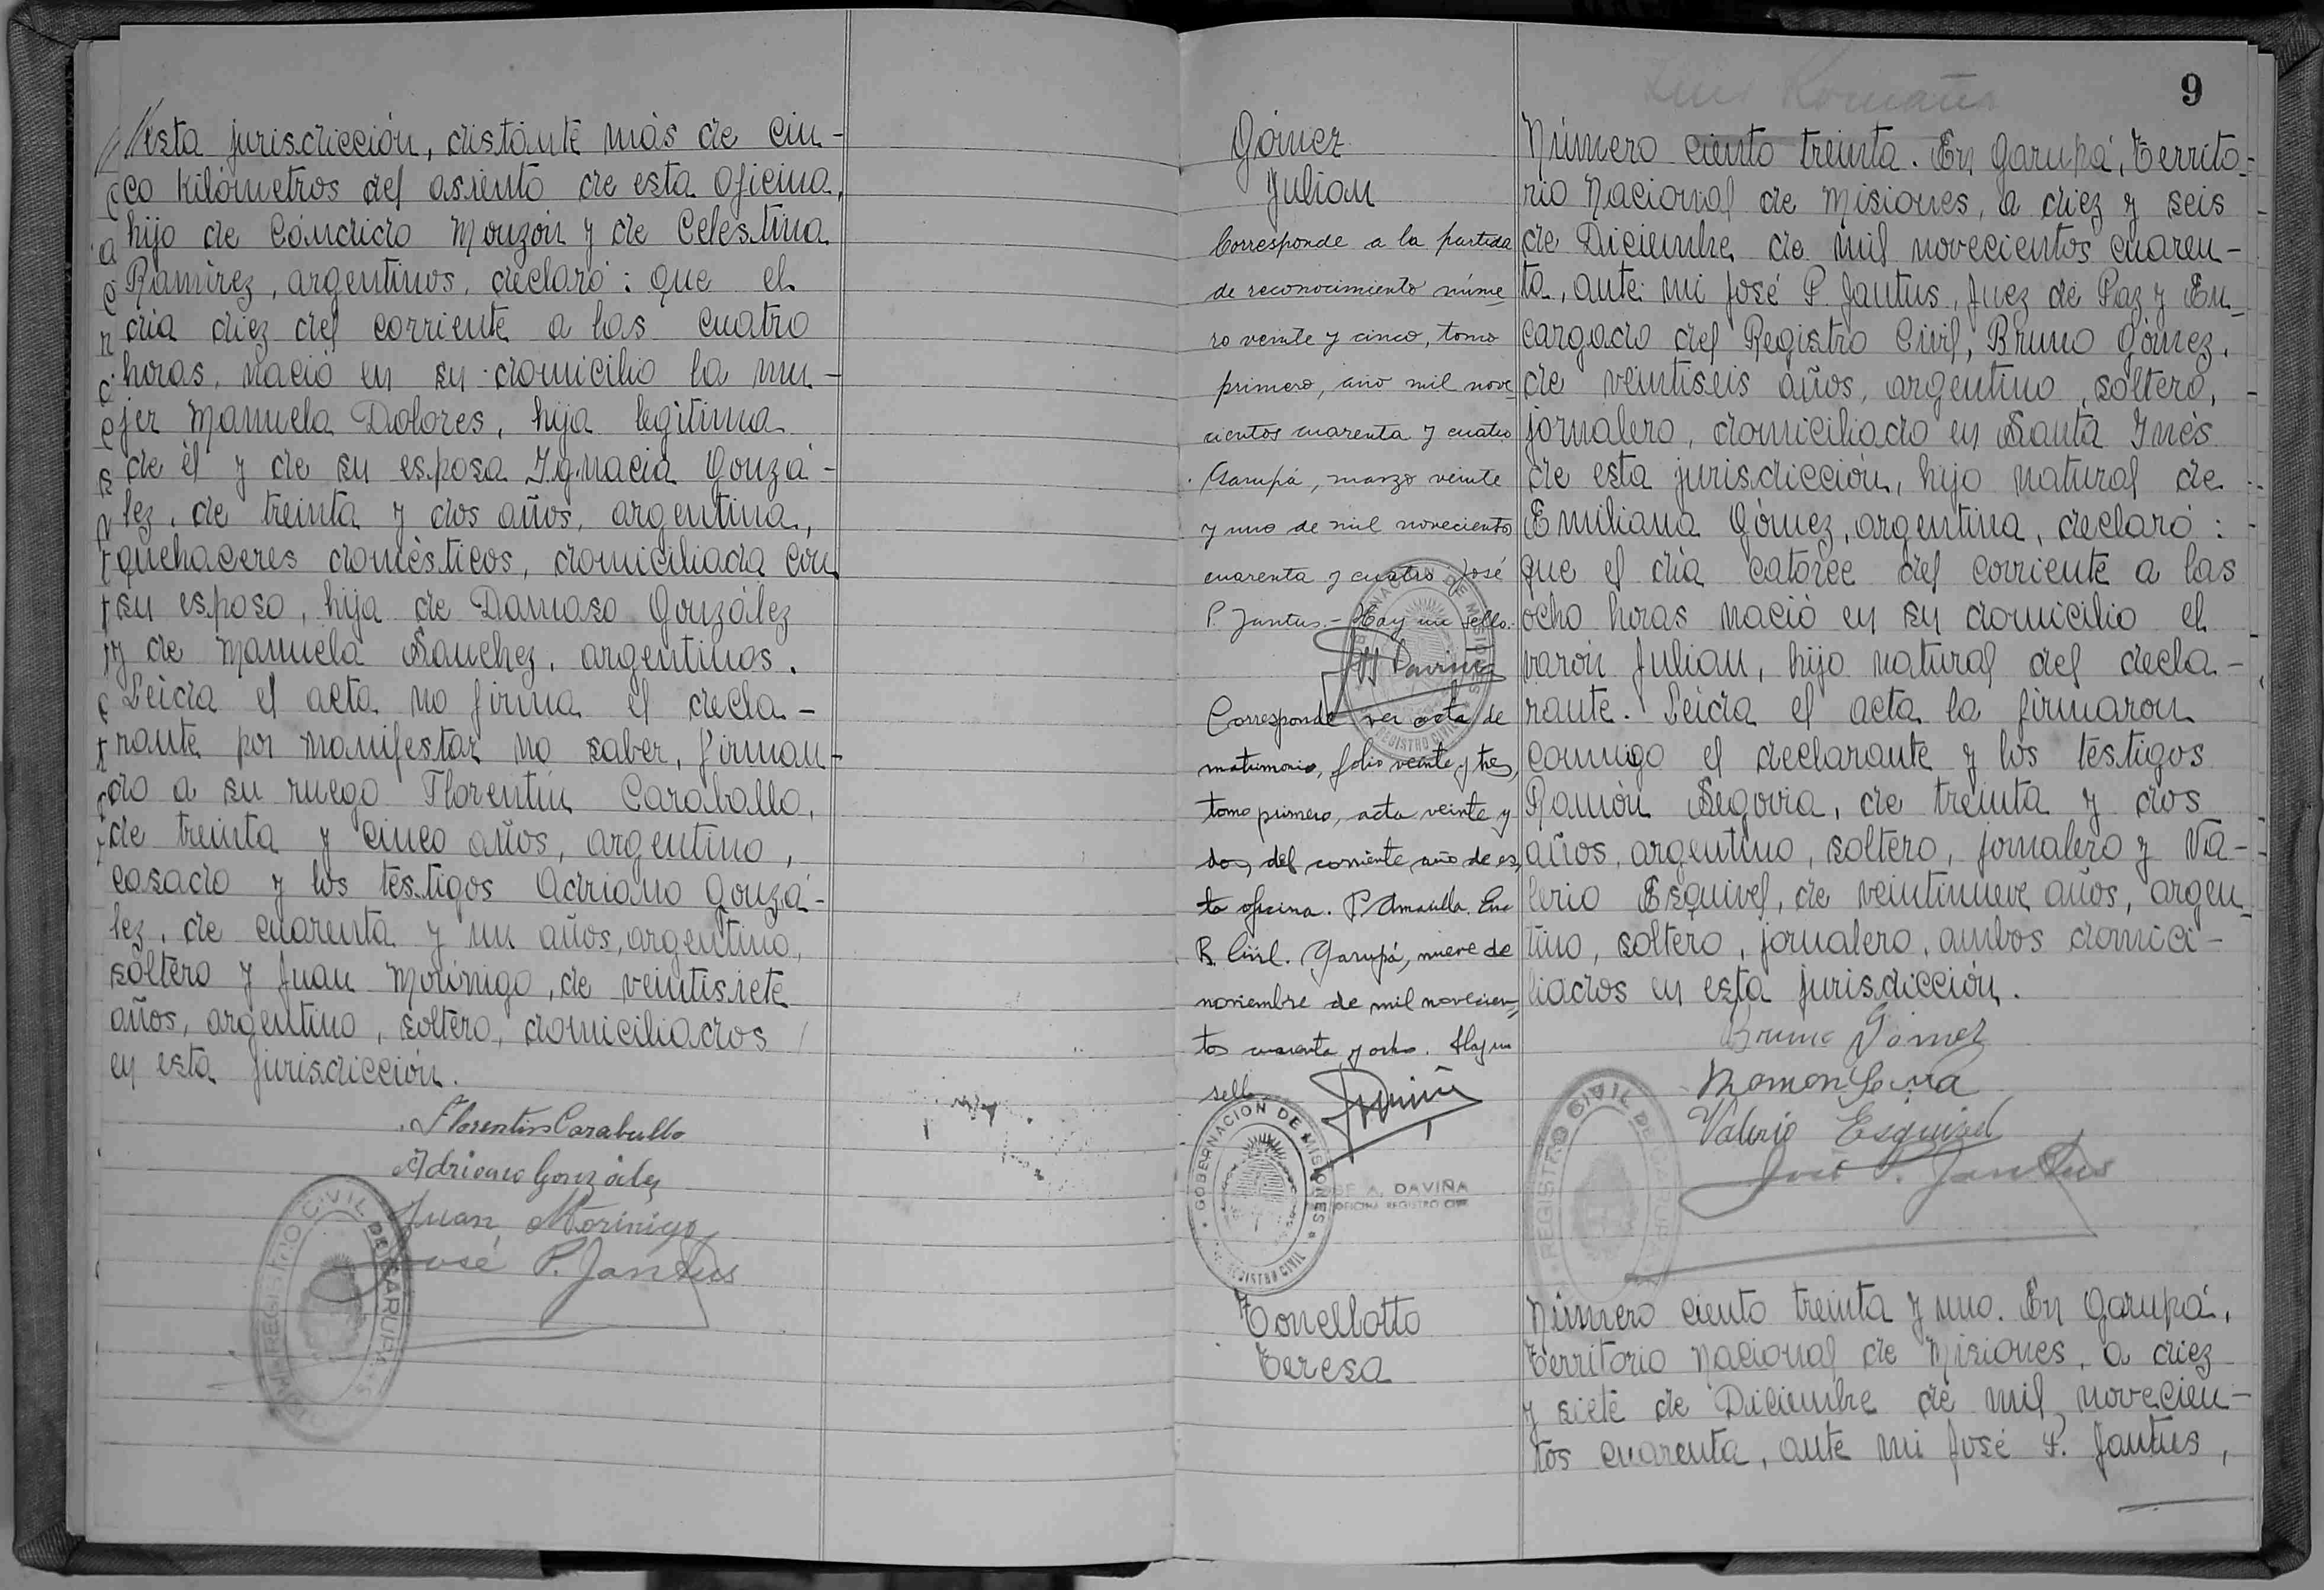 //esta jurisdicción, distante más de cin-
co kilómetros del asiento de esta oficina,
hijo de Cándido Monzón y de Celestina
Ramírez, argentinos, declaró: que el
día diez del corriente a las cuatro
horas, nació en su domicilio la mu-
jer Manuela Dolores, hija legítima
de él y de su esposa Ignacia Gonzá-
lez, de treinta y dos años, argentina,
quehaceres domésticos, domiciliada con
su esposo, hija de Damaso González
y de Manuela Sanchez, argentinos.
Leída el acta no firma el decla-
rante por manifestar no saber, firman-
do a su ruego Florentín Caraballo,
de treinta y cinco años, argentino,
casado y los testigos Adriano Gonzá-
lez, de cuarenta y un años, argentino,
soltero y Juan Morinigo, de veintisiete
años, argentino, soltero, domiciliados
en esta jurisdicción.
Florentin Caraballo
Adriano González
Juan Morinigo
José P. Jantus
REGISTRO CIVIL DE GARUPA
9
Luis Romaña
Gómez
Julian
Corresponde a la partida
de reconocimiento núme-
ro veinte y cinco, tomo
primero, año mil nove-
cientos cuarenta y cuatro
Garupá, marzo veinte
y uno de mil novecientos
cuarenta y cuatro José
P. Jantus.- Hay un sello.
Corresponde ver acta de
matrimonio, folio veinte y tres,
tomo primero, acta veinte y
dos, del corriente año de es-
ta oficina. P. Amarilla. Enc
R. Civil. Garupá, nueve de
noviembre de mil novecien-
tos cuarenta y ocho. Hay un
sello
GOBERNACION DE MISIONES
REGISTRO CIVIL
A. DAVIÑA
OFICINA REGISTRO CIVIL
Número ciento treinta. En Garupá, Territo-
rio Nacional de Misiones, a diez y seis
de Diciembre de mil novecientos cuaren-
ta, ante mi José P. Jantus, Juez de Paz y En-
cargado del Registro Civil, Bruno Gómez,
de veintiseis años, argentino, soltero,
jornalero, domiciliado en Santa Inés
de esta jurisdicción, hijo natural de
Emiliana Gómez, argentina, declaró:
que el día catorce del corriente a las
ocho horas nació en su domicilio el
varón Julian, hijo natural del decla-
rante. Leída el acta la firmaron
conmigo el declarante y los testigos
Ramón Segovia, de treinta y dos
años, argentino, soltero, jornalero y Va-
lerio Esquivel, de veintinueve años, argen-
tino, soltero, jornalero, ambos domici-
liados en esta jurisdicción.
Bruno Gómez
Ramon
Valerio Esquivel
José P. Jantus
REGISTRO CIVIL DE GARUPA
Tonellotto
Teresa
Número ciento treinta y uno. En Garupá,
Territorio Nacional de Misiones, a diez
y siete de Diciembre de mil novecien-
tos cuarenta, ante mi José P. Jantus,